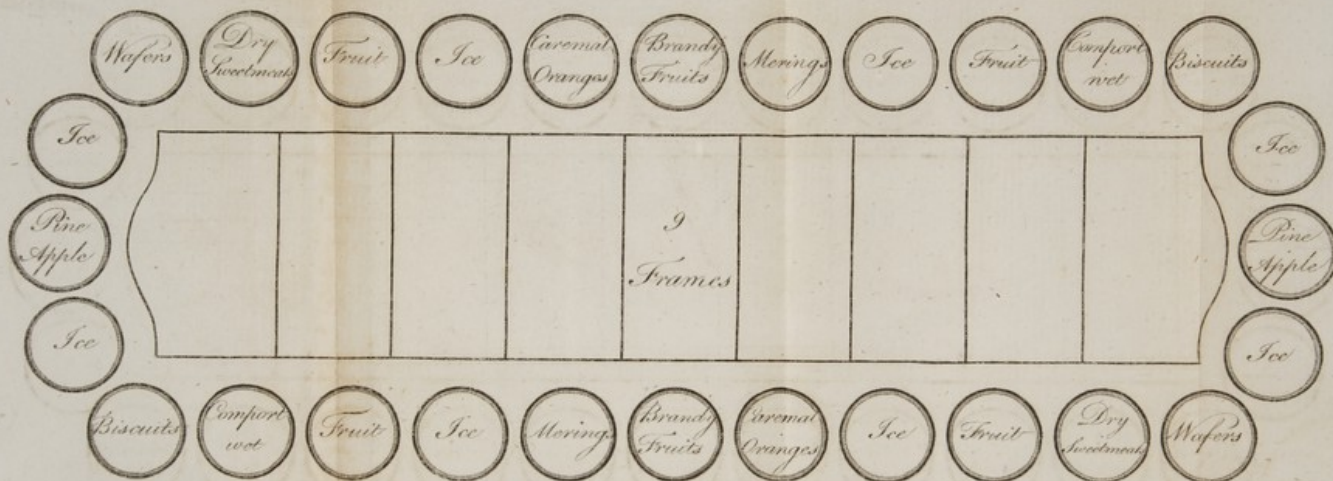 Wafers
Dry
Sweetmeats
Fruit
Ice
Caremal
Oranges
Brandy
Fruits
Merings
Ice
Fruit
Comport
wet
Biscuits
Ice
Ice
Pine
Apple
9
Frames
Pine
Apple
Ice
Ice
Biscuits
Comport
wet
Fruit
Ice
Merings
Brandy
Fruits
Caremal
Oranges
Ice
Fruit
Dry
Sweetmeats
Wafers